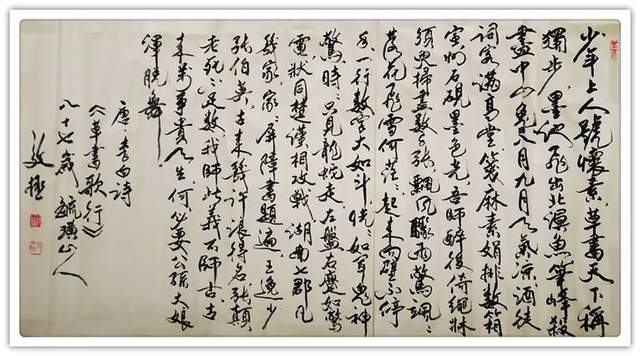 少年上人號懷素草書天下稱
獨步墨池飛出北溟魚筆峰殺
盡中山兔八月九月天氣凉酒徒
詞客滿高堂箋麻素絹排數箱
宣州石硯墨色光吾師醉後倚繩牀
須臾掃盡數千張飄風驟雨驚颯〻
落花飛雪何茫〻起來向壁不停
手一行數字大如斗恍〻如聞鬼神
驚時〻只見龍蛇走左盤右蹙如驚
電狀同楚漢相攻戰湖南七郡凡
幾家家〻屏障書題遍王逸少
張伯英古來幾許浪得名張顛
老死不足數我師此義不師古古
來萬事貴天生何必要公孫大娘
渾脫舞
唐李白诗
《草書歌行》
八十七歲毓璜山人